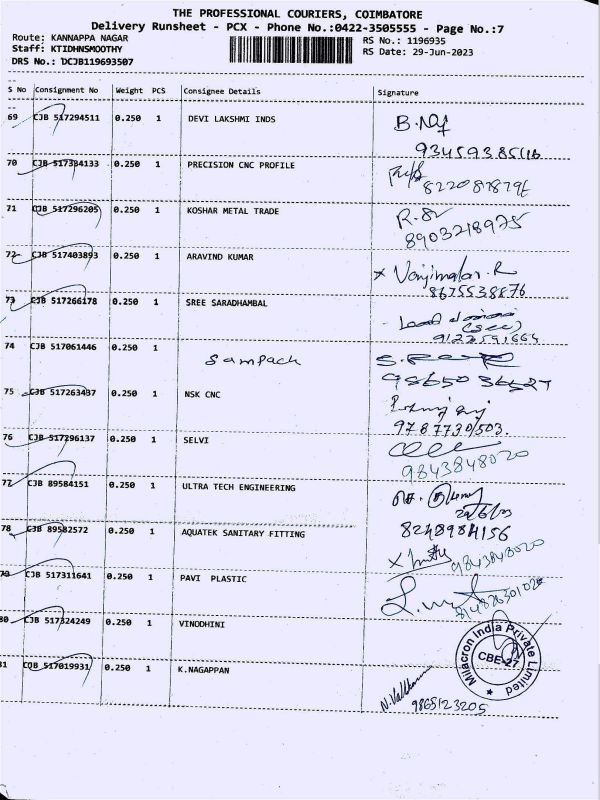 THE PROFESSIONAL COURIERS, COIMBATORE
Delivery Runsheet - PCX - Phone No.:0422-3505555 - Page No.:7
Route: KANNAPPA NAGAR
RS No.: 1196935
Staff: KTIDHNSMOOTHY
RS Date: 29-Jun-2023
DRS No.: DCJB119693507
S No Consignment No Weight PCS Consignee Details Signature
69 CJB 517294511 0.250 1 DEVI LAKSHMI INDS
70 CJB 517384133 0.250 1 PRECISION CNC PROFILE
71 CJB 517296205 0.250 1 KOSHAR METAL TRADE
R.S
8903218975
72 CJB 517403893 0.250 1 ARAVIND KUMAR
x Vanjimalar. R
8675538876
73 CJB 517266178 0.250 1 SREE SARADHAMBAL
74 CJB 517061446 0.250 1
Sampack
75 CJB 517263437 0.250 1 NSK CNC
9787730503.
76 CJB 517296137 0.250 1 SELVI
9843848020
77 CJB 89584151 0.250 1 ULTRA TECH ENGINEERING
8248984156
78 CJB 89582572 0.250 1 AQUATEK SANITARY FITTING
9843848020
79 CJB 517311641 0.250 1 PAVI PLASTIC
80 CJB 517324249 0.250 1 VINODHINI
Milacron India Private Limited
CBE-27
81 COB 517019931 0.250 1 K.NAGAPPAN
9865123205